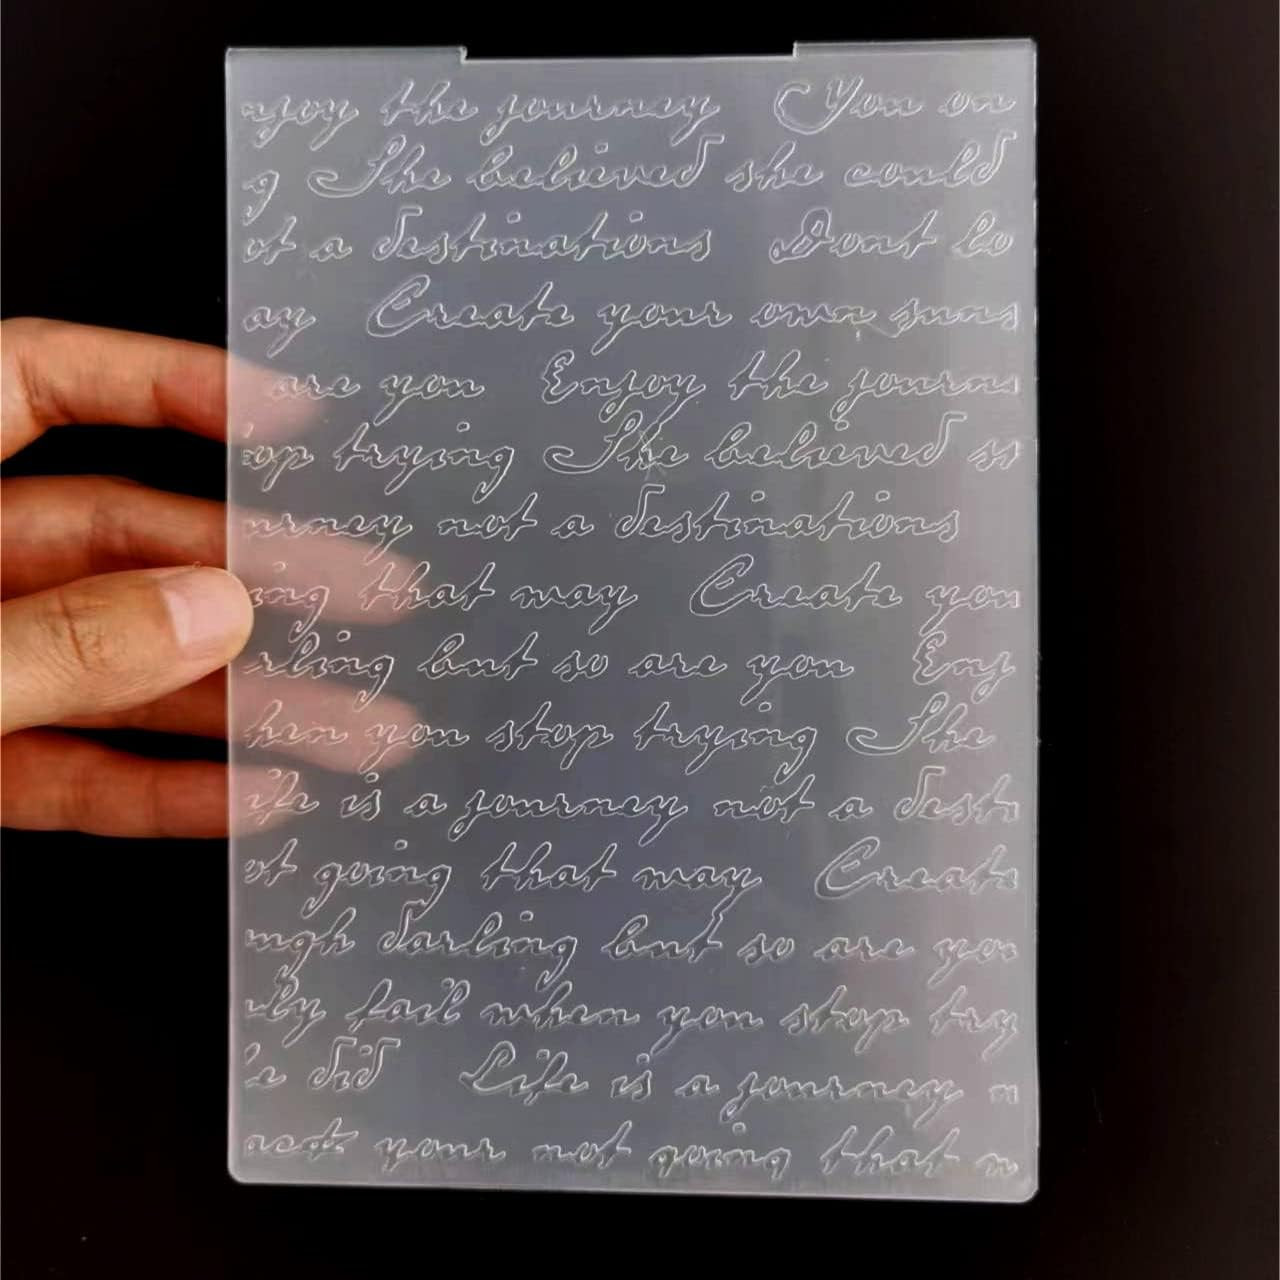 njoy the journey You on
g She believed she could
ot a destinations Dont lo
ay Create your own suns
are you Enjoy the journe
op trying She believed s
urney not a destinations
ing that may Create you
rling but so are you Enj
hen you stop trying She
ife is a journey not a desti
ot going that may Create
ugh darling but so are you
nly fail when you stop try
e did Life is a journey n
act your not going that m